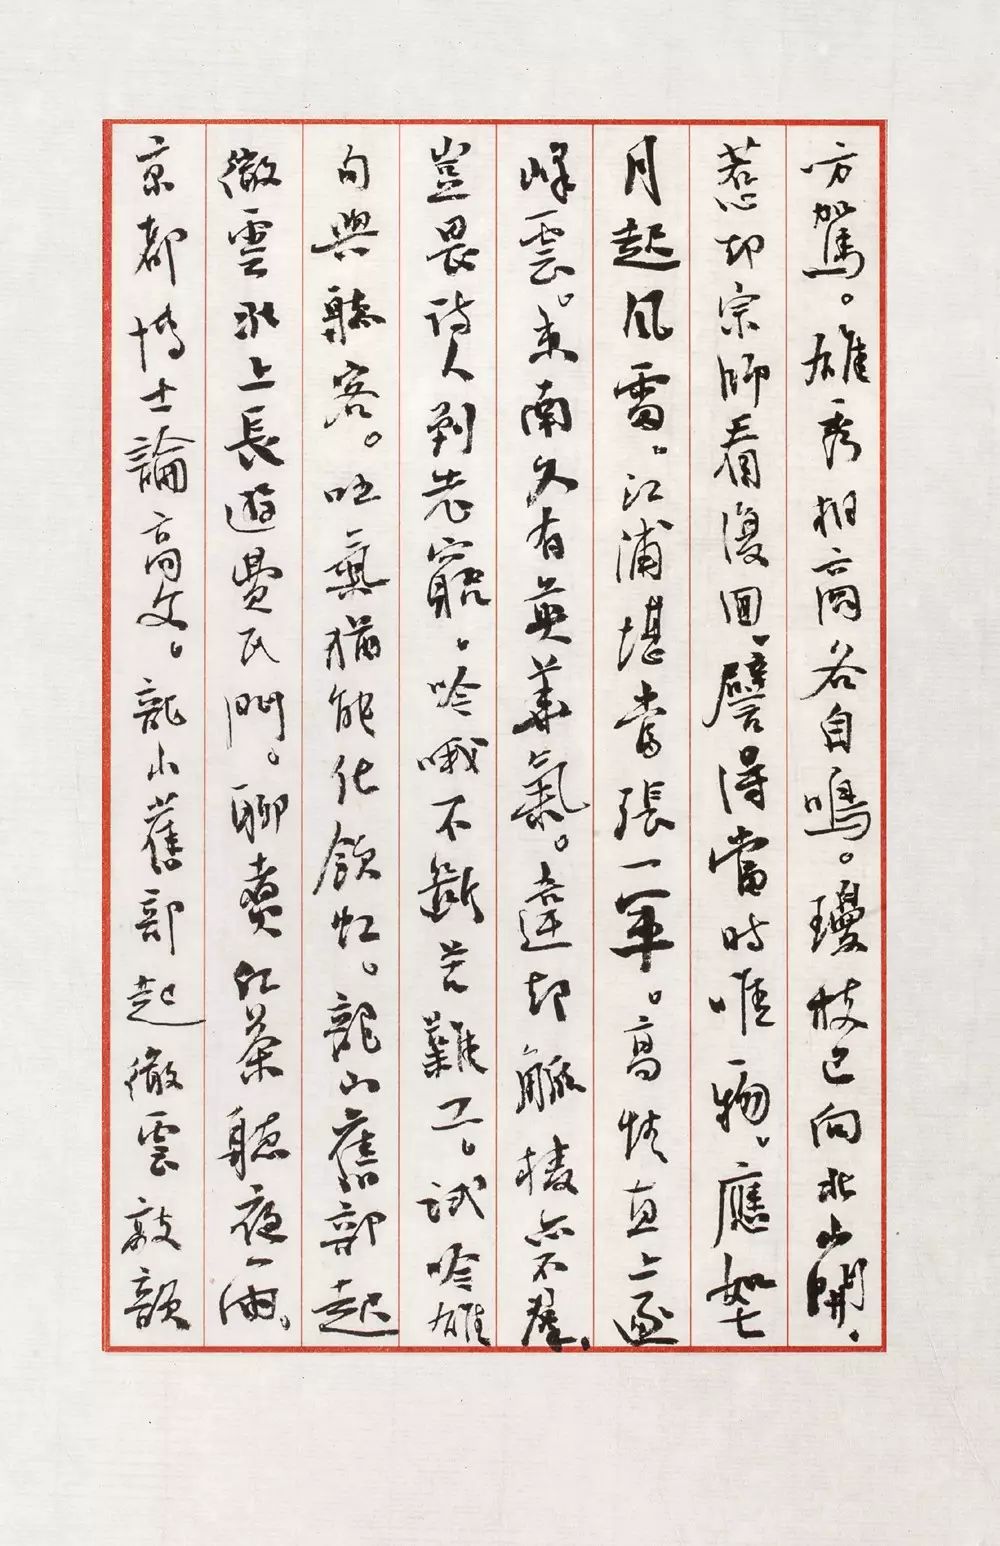 方駕。雄秀相高各自鳴。瓊枝已向北山開。
惹却宗師看復回。譬得當時唯一物。應如七
月起風雷。江浦堪當張一軍。高情直上逐
峰雲。東南久有英華氣。達却觚棱亦不羣。
豈畏詩人到老窮。吟哦不斷苦難工。試吟雄
句與聽客。吐氣猶能化飲虹。龍山舊部起
徹雲水上長遊疊民門。聊賣紅茶聽夜雨。
京都博士論高文。龍山舊部起徹雲敲韻